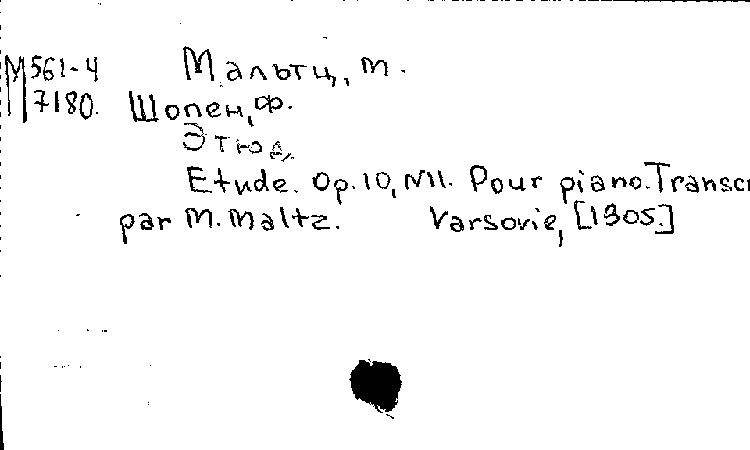 М 561-4 Мальтц, М.
7180. Шопен, Ф.
Этюд.
Etude. Op.10, N11. Pour piano. Transcr
par M. Maltz. Varsovie, [1905.]